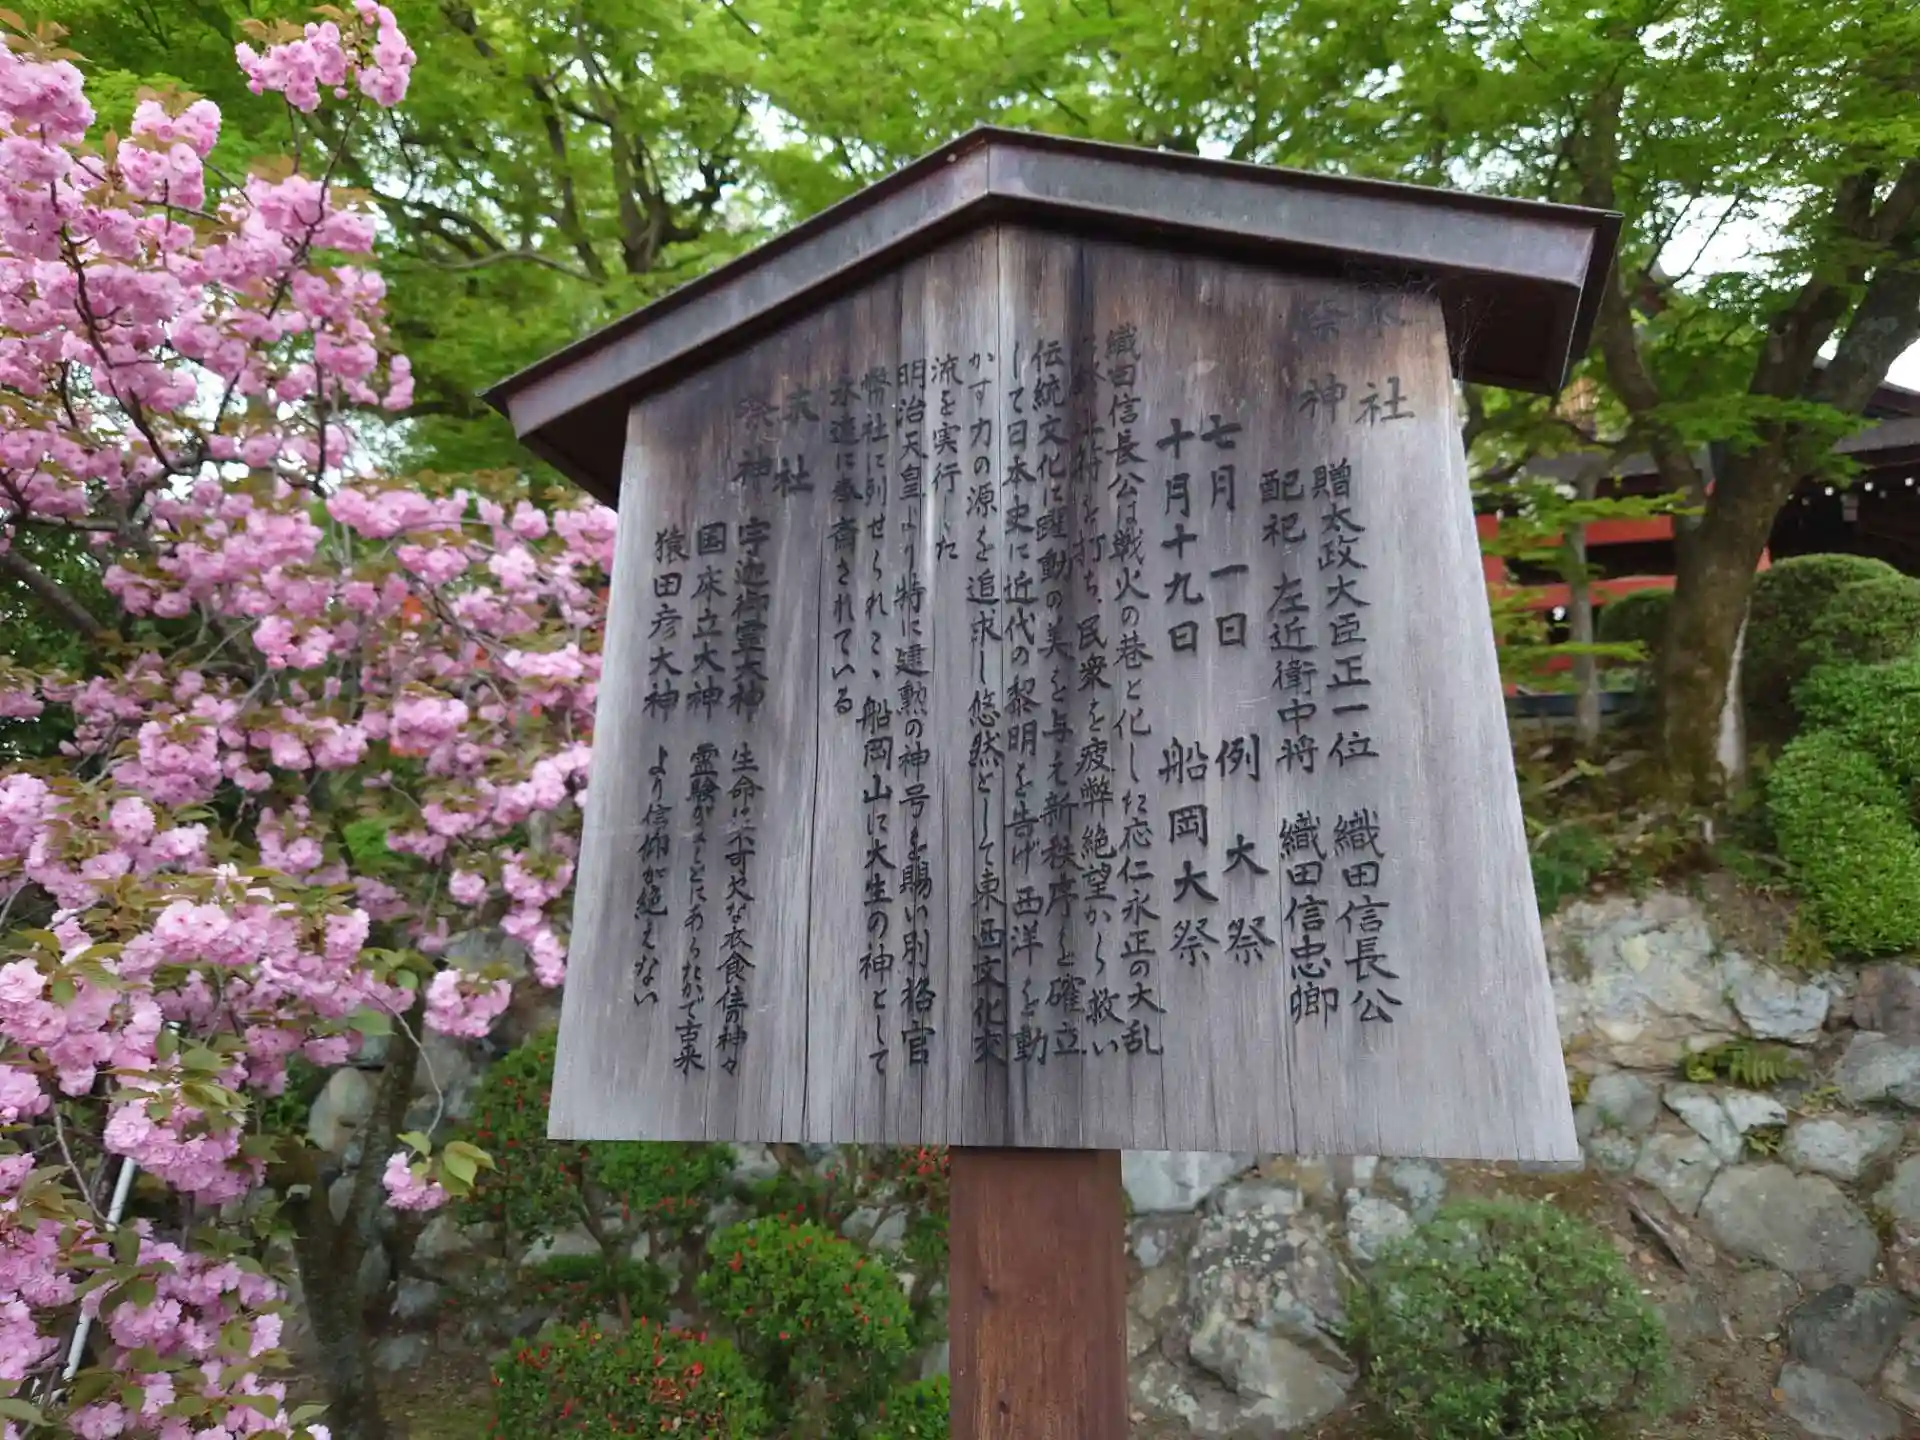 本社
祭神
贈太政大臣正一位 織田信長公
配祀 左近衛中将 織田信忠卿
七月 一日 例大祭
十月十九日 船岡大祭
織田信長公は戦火の巷と化した応仁永正の大乱
に終止符を打ち、民衆を疲弊絶望から救い
伝統文化に躍動の美を与え新秩序を確立
して日本史に近代の黎明を告げ西洋を動
かす力の源を追求し悠然として東西文化交
流を実行した
明治天皇より特に建勲の神号を賜い別格官
幣社に列せられここ船岡山に大生の神として
永遠に奉斎されている
末社
祭神
宇迦御霊大神 生命に不可欠な衣食住の神々
国床立大神 霊験がまことにあらたかで古来
猿田彦大神 より信仰が絶えない